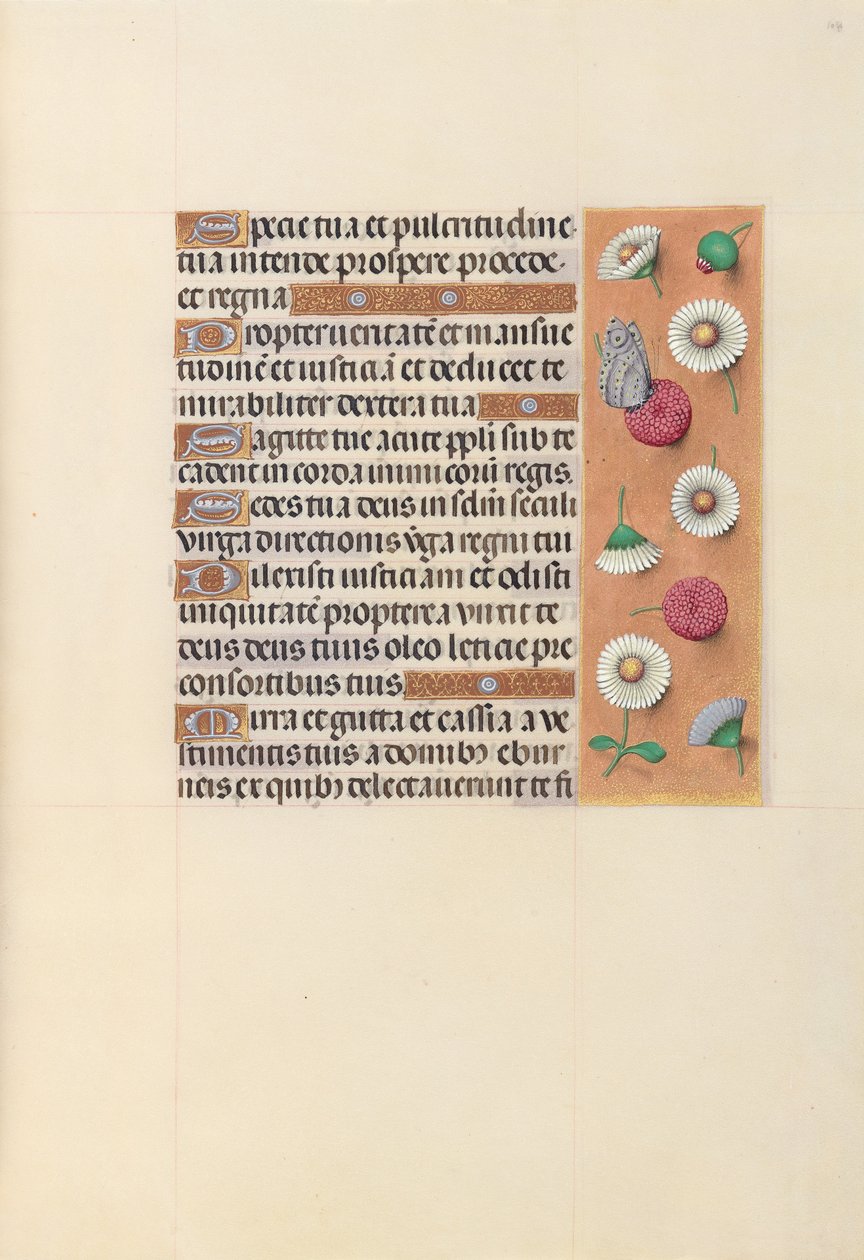 Specie tua et pulcritudine
tua intende prospere procede
et regna
Propter veritatē et mansue
tudinē et iusticiā et deducet te
mirabiliter dextera tua
Sagitte tue acute ppli sub te
cadent in corda inimicorū regis.
Sedes tua deus in sclm seculi
virga directionis v̄ga regni tui
Dilexisti iusticiam et odisti
iniquitatē propterea vnxit te
deus deus tuus oleo leticie pre
consortibus tuis
Mirra et gutta et cassia a ve
stimentis tuis a domibꝫ ebur
neis ex quibꝫ delectaverunt te fi